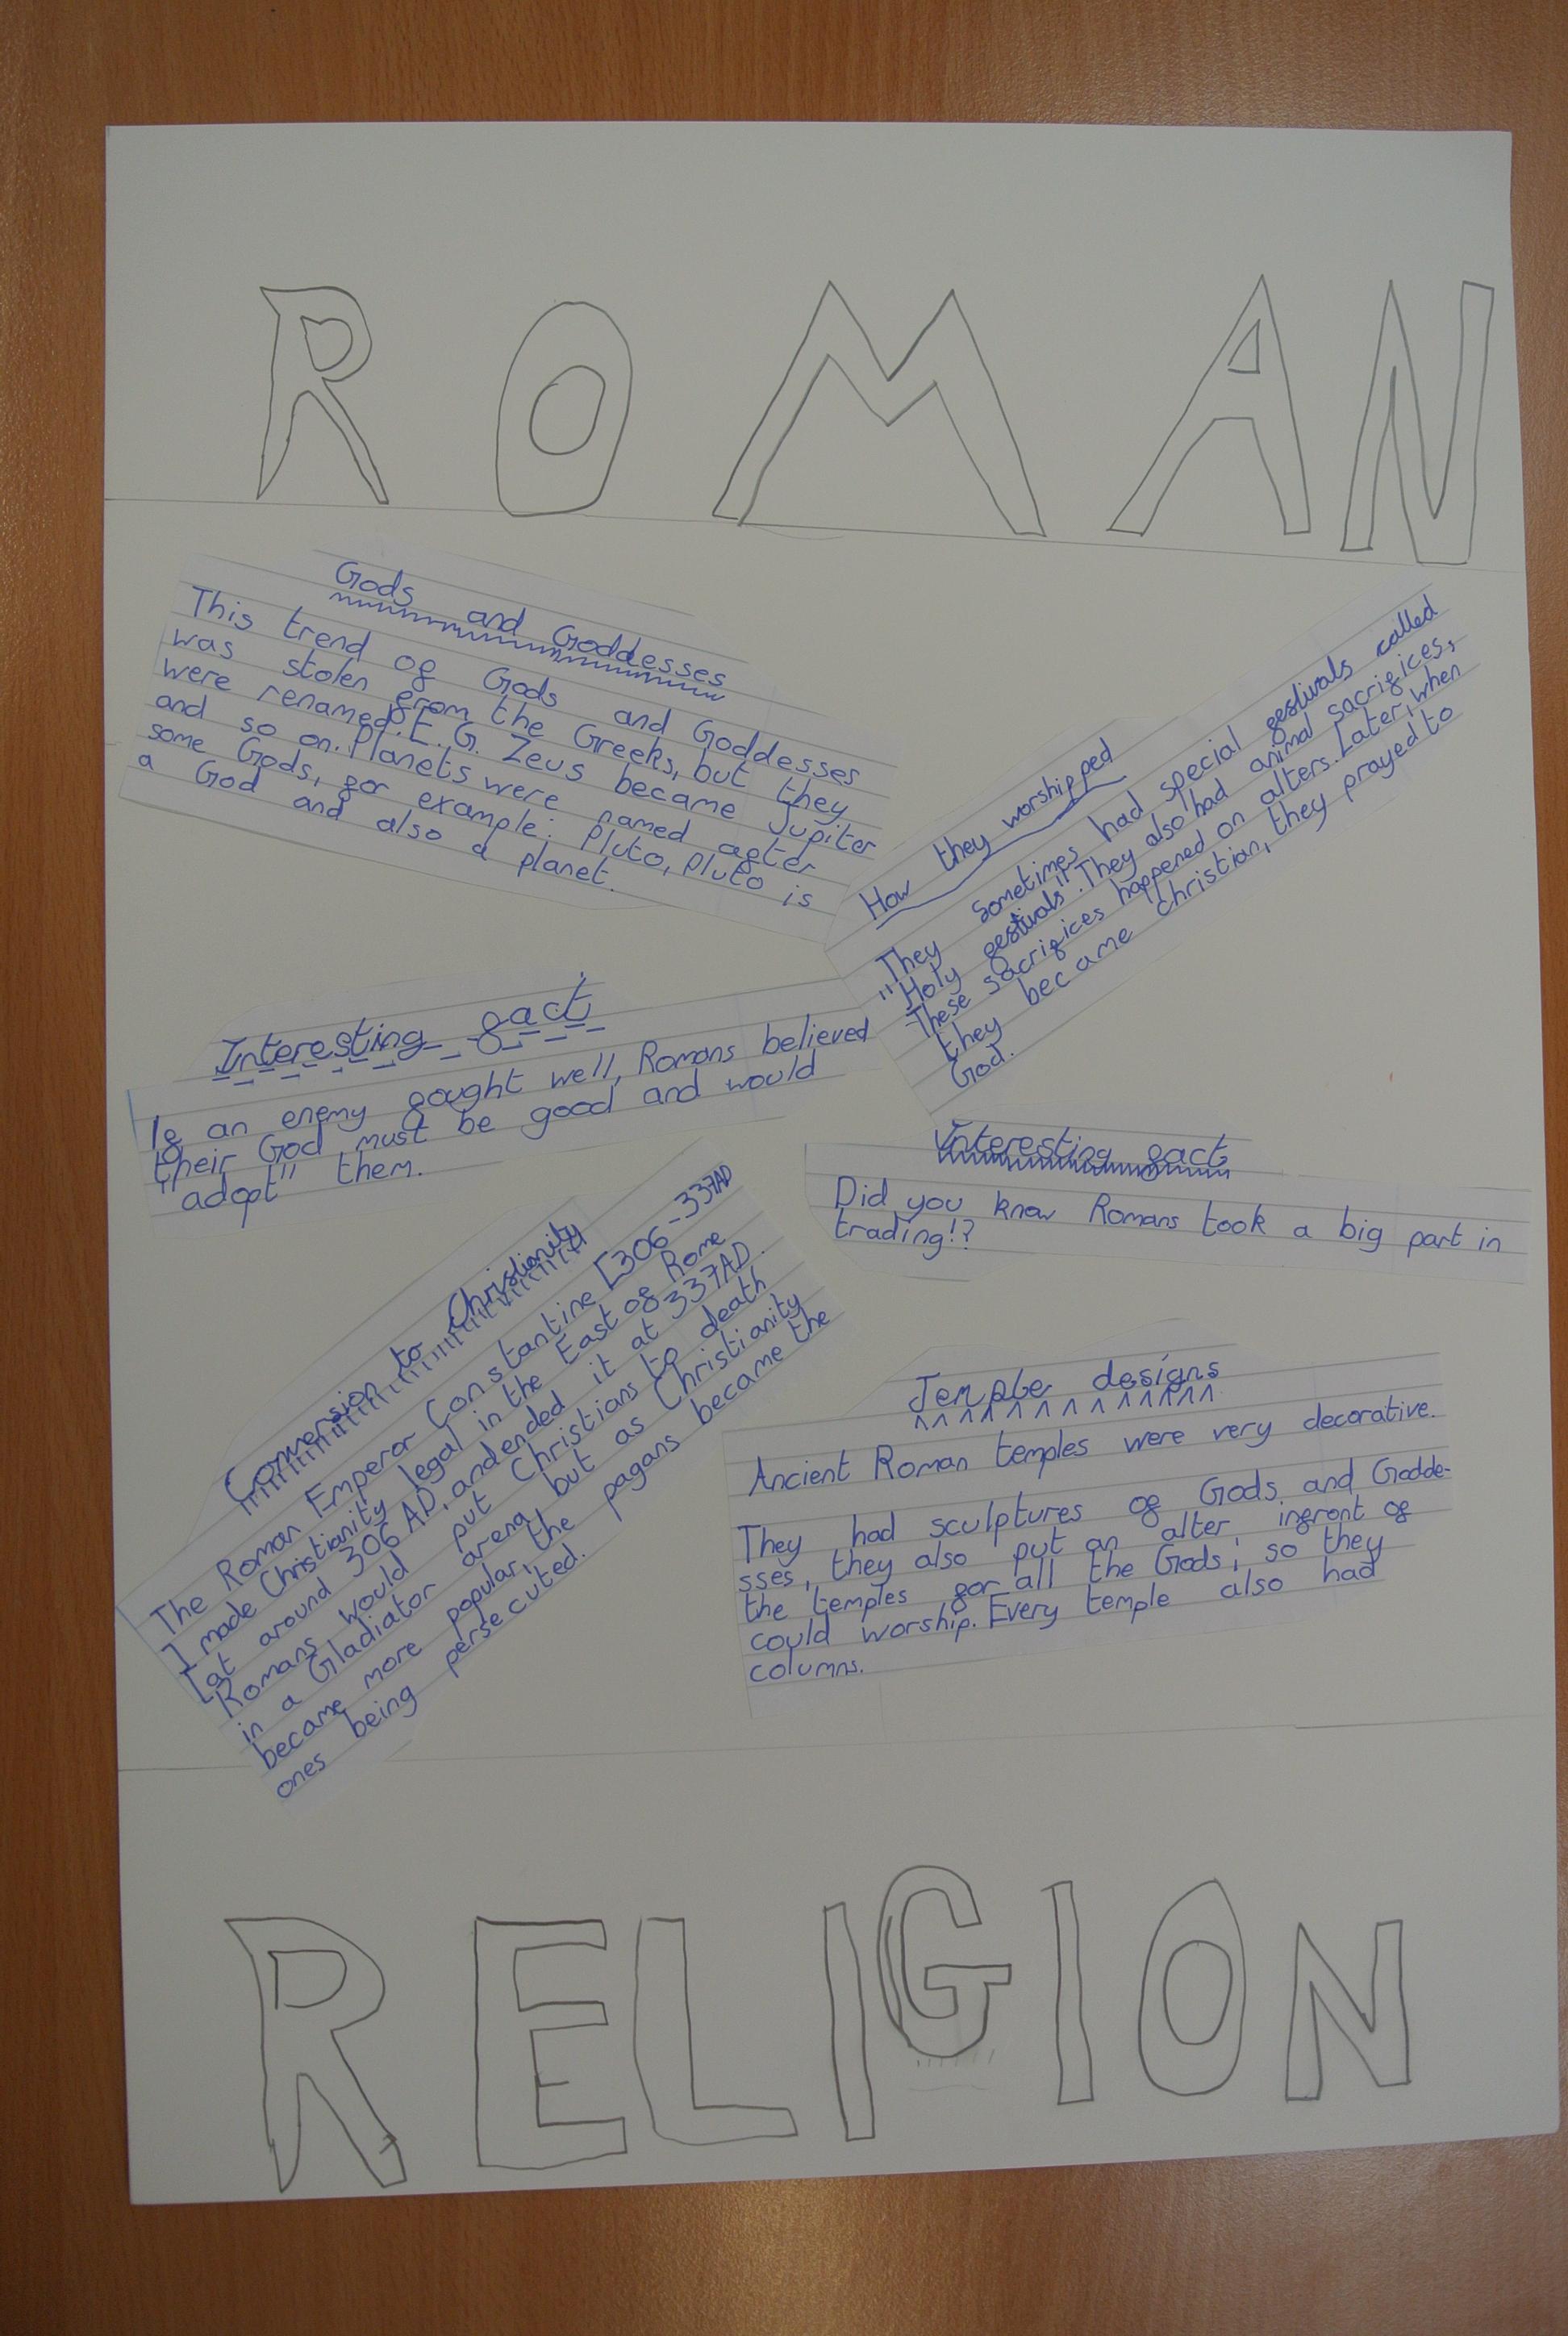 ROMAN
Gods and Goddesses
This trend of Gods and Goddesses
was stolen from the Greeks, but they
were renamed. E.G. Zeus became Jupiter
and so on. Planets were named after
some Gods, for example: Pluto, Pluto is
a God and also a planet.
How they worshipped
They Sometimes had special festivals called
"Holy festivals". They also had animal sacrifices,
These sacrifices happened on alters. Later, when
they became Christian, they prayed to
God.
Interesting fact
If an enemy fought well, Romans believed
their God must be good and would
"adopt" them.
Interesting fact
Did you know Romans took a big part in
trading!?
Conversion to Christianity
The Roman Emperor Constantine [306-337AD
] made Christianity legal in the East of Rome
[at around 306 AD, and ended it at 337AD.
Romans would put Christians to death
in a Gladiator arena but as Christianity
became more popular, the pagans became the
ones being persecuted.
Temple designs
Ancient Roman temples were very decorative.
They had sculptures of Gods and Godde-
sses, they also put an alter, infront of
the temples for all the Gods; so they
could worship. Every temple also had
columns.
RELIGION